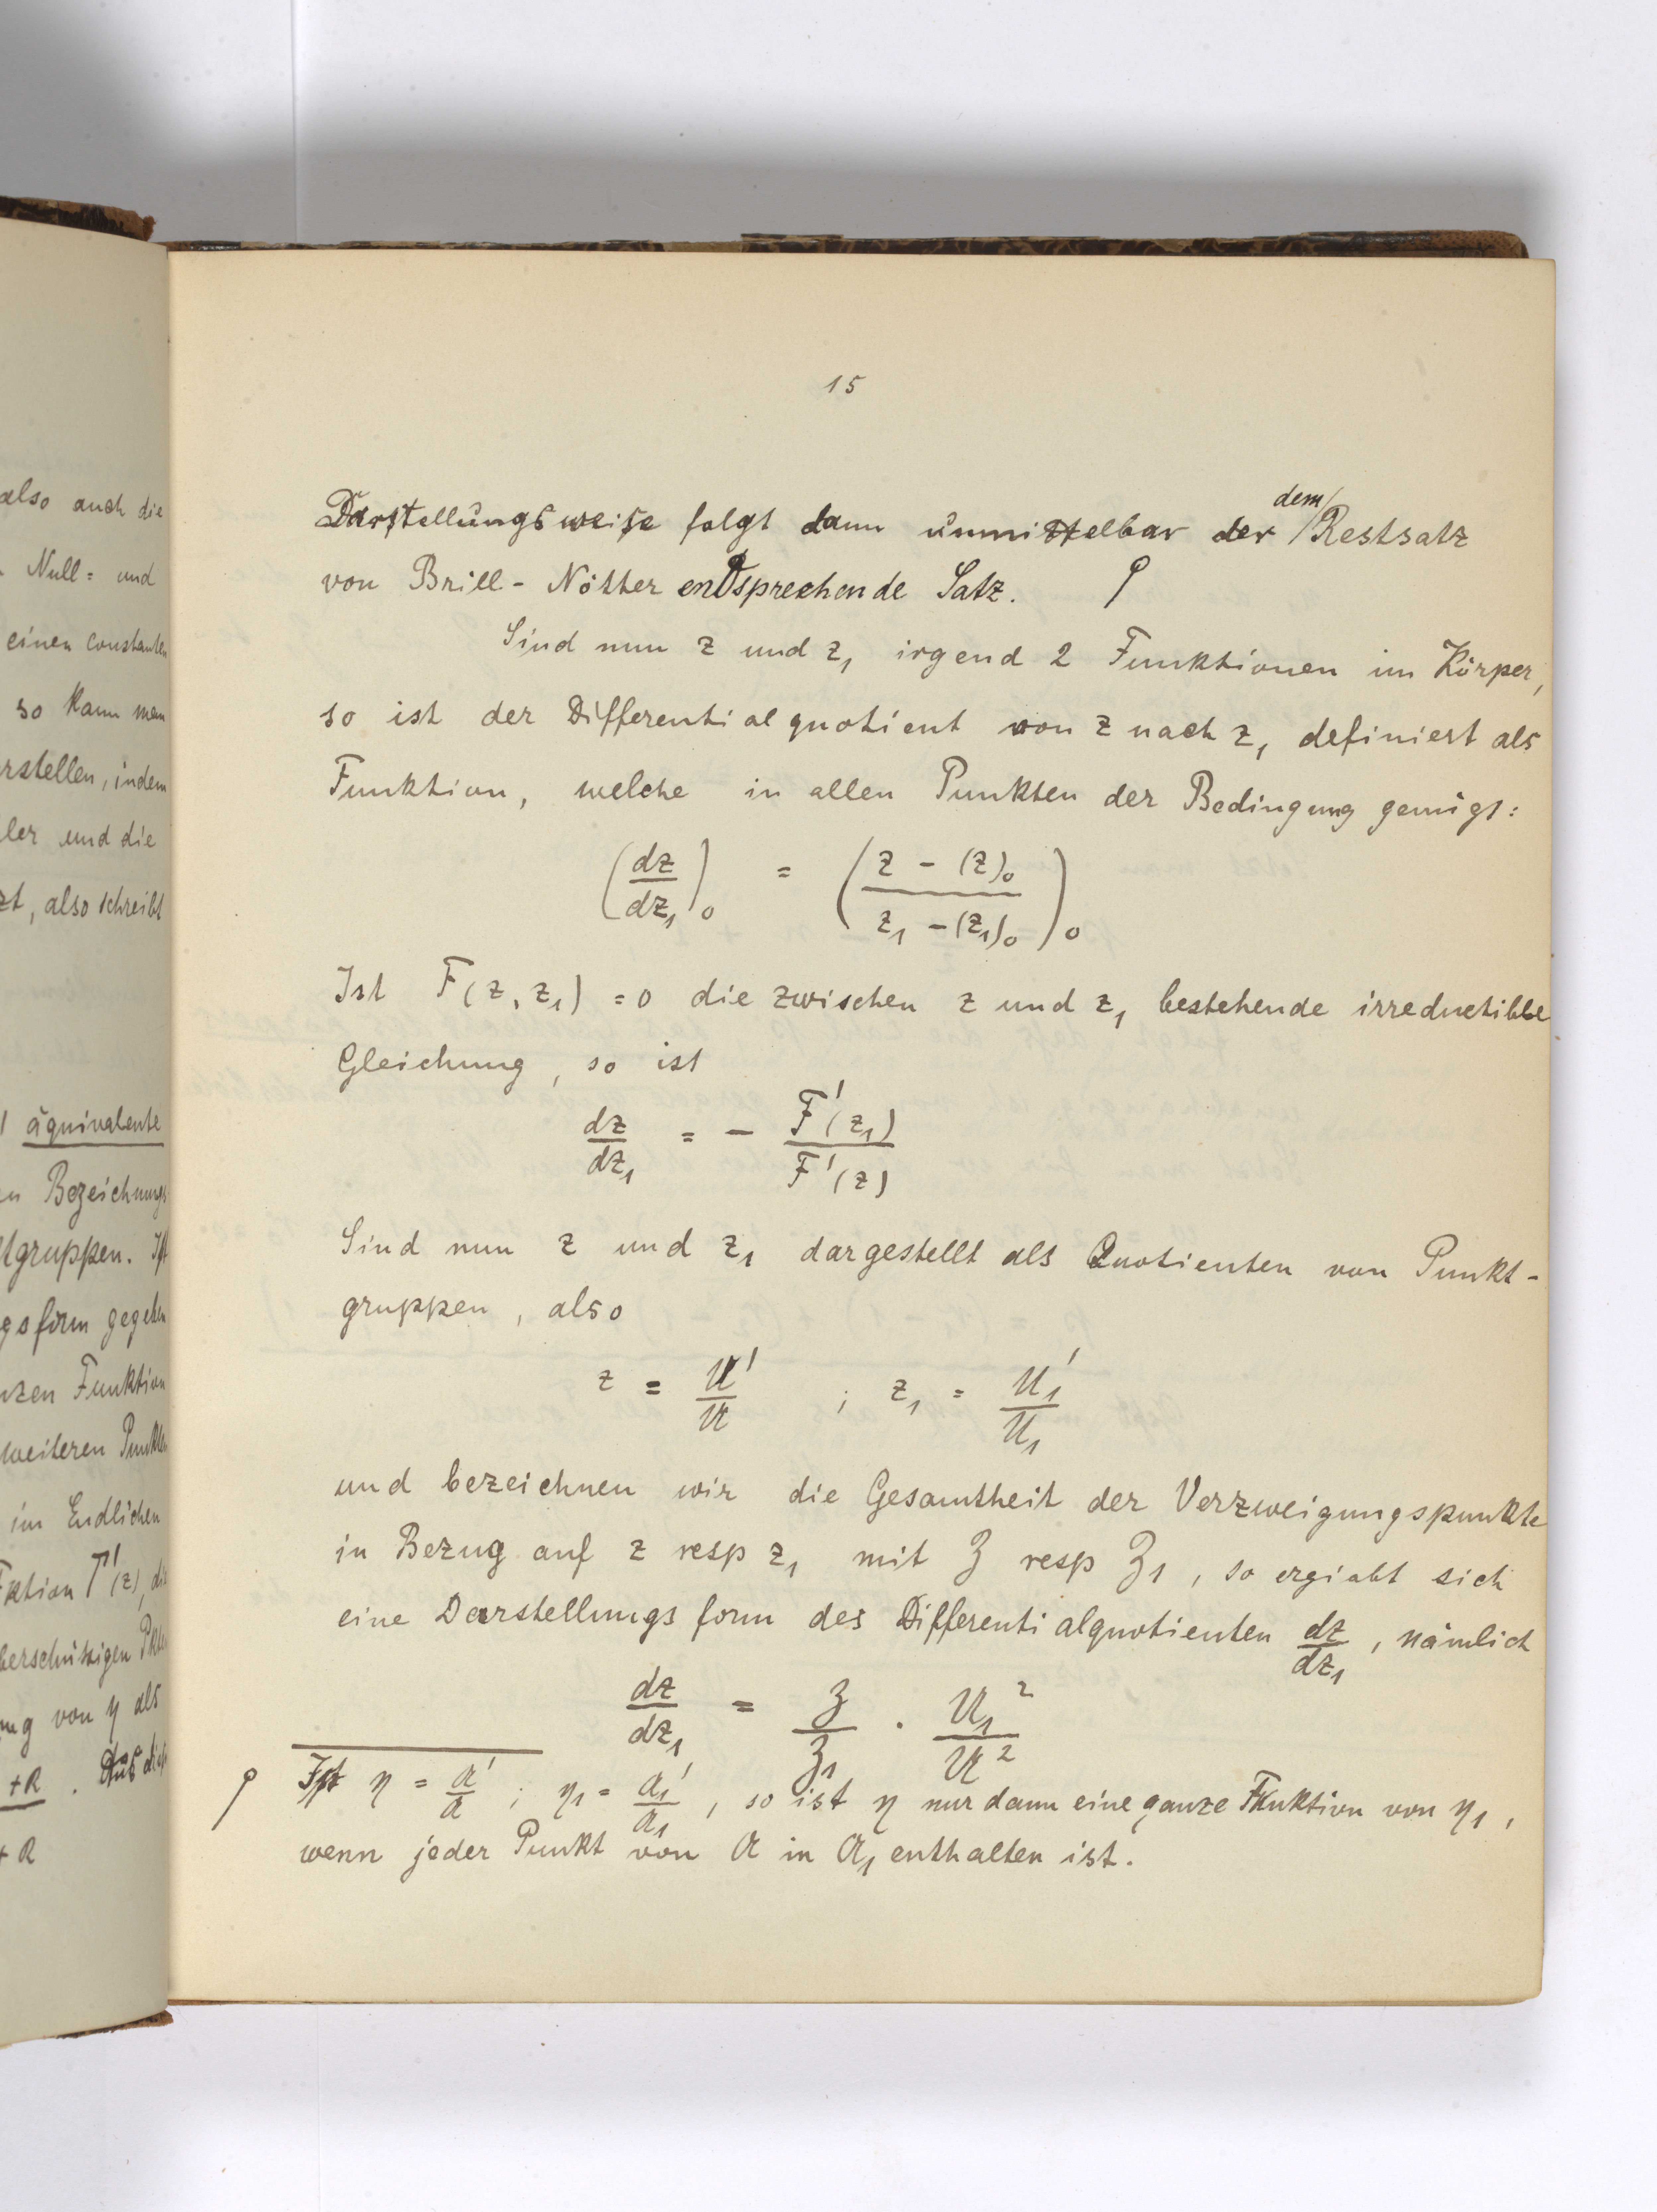 also auch die
Null= und
einen constanten
so kann man
rstellen, indem
ler und die
zt, also schreibt
äquivalente
en Bezeichnungs
tgruppen. Ist
gsform gegeben
nzen Funktion
weiteren Punkten
im Endlichen
ktion Γ'(z), die
berschüssigen Pkten
ung von η als
+R . Aus dies
+ R
15
Darstellungsweise folgt dann unmittelbar der dem/ Restsatz
von Brill - Nöther entsprechende Satz. ϙ
Sind nun z und z₁ irgend 2 Funktionen im Körper,
so ist der Differentialquotient von z nach z₁ definiert als
Funktion, welche in allen Punkten der Bedingung genügt:
(dz/dz₁)₀ = ((z - (z)₀)/(z₁ - (z₁)₀))₀
Ist F(z, z₁) = 0 die zwischen z und z₁ bestehende irreductible
Gleichung, so ist
dz/dz₁ = - F'(z₁)/F'(z)
Sind nun z und z₁ dargestellt als Quotienten von Punkt-
gruppen, also
z = 𝔘'/𝔘 ; z₁ = 𝔘₁'/𝔘₁
und bezeichnen wir die Gesamtheit der Verzweigungspunkte
in Bezug auf z resp z₁ mit ℨ resp ℨ₁, so ergiebt sich
eine Darstellungsform des Differentialquotienten dz/dz₁, nämlich
dz/dz₁ = ℨ/ℨ₁ · 𝔘₁²/𝔘²
ϙ Ist η = 𝔄'/𝔄 ; η₁ = 𝔄₁'/𝔄₁, so ist η nur dann eine ganze Funktion von η₁,
wenn jeder Punkt von 𝔄 in 𝔄₁ enthalten ist.